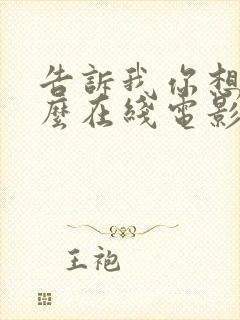 告訴我 你想
麼在綫電影
王袍